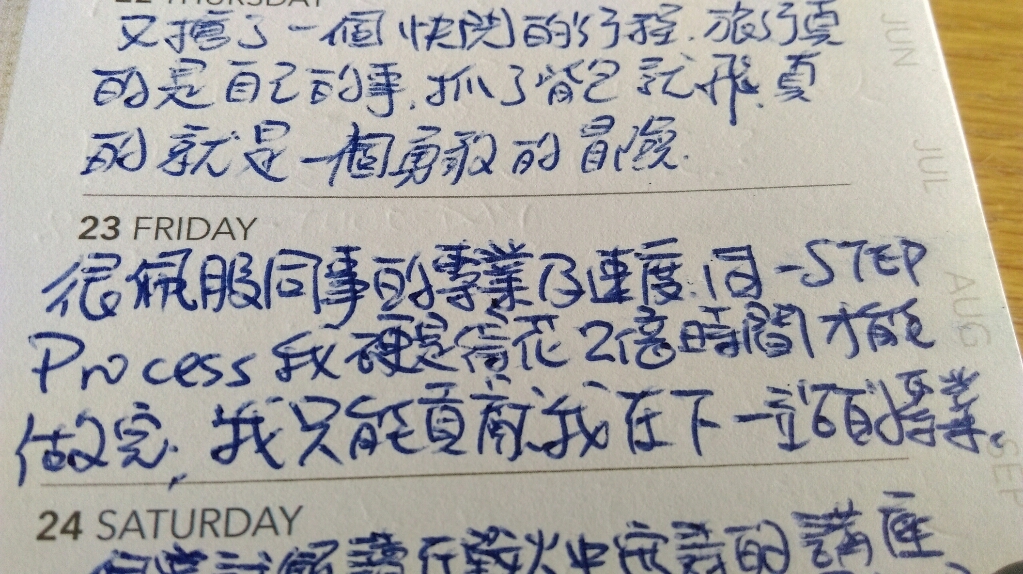 22 THURSDAY
又搞了一個快閃的行程.旅行真
的是自己的事.抓了背包就飛.真
的就是一個勇敢的冒險.
23 FRIDAY
很佩服同事的專業及速度.同一STEP
Process 我硬是需花2倍時間才能
做完,我只能貢獻我在下一站的專業。
24 SATURDAY
的講座
JUN
JUL
AUG
SEP